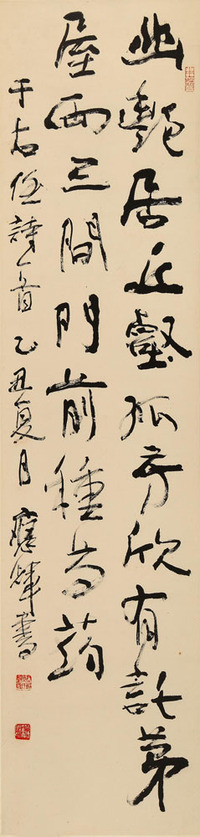 幽艷居丘壑孤芳欣有託茅
屋兩三間門前種芍葯
于右任詩一首 乙丑夏月 應輝書